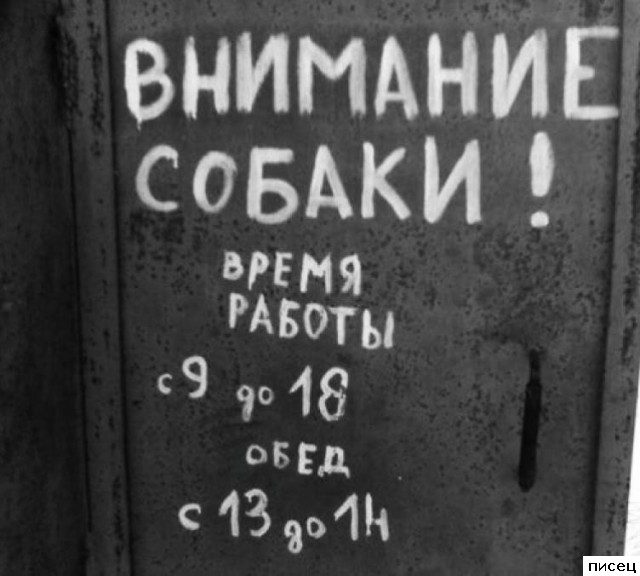 ВНИМАНИЕ
СОБАКИ !
ВРЕМЯ
РАБОТЫ
с 9 до 18
ОБЕД
с 13 до 14
писец